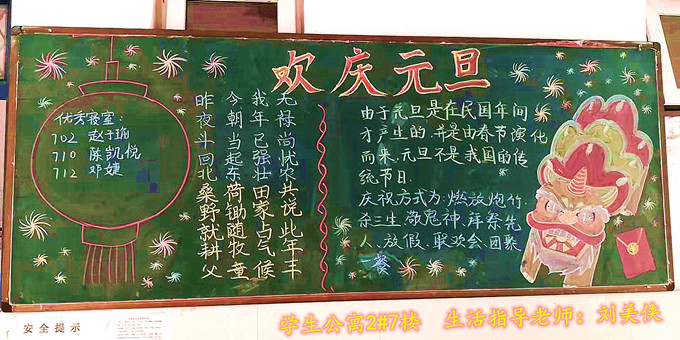 欢庆元旦
优秀寝室:
702 赵千瑜
710 陈凯悦
712 邓婕
昨夜斗回北桑野就耕父
今朝当起东荷锄随牧童
我年已强壮田家占气候
无禄尚忧农共说此年丰
由于元旦是在民国年间
才产生的,并是由春节演化
而来,元旦不是我国的传
统节日.
庆祝方式为:燃放炮竹,
杀三生,敬鬼神,拜祭先
人、放假、联欢会、团聚
一餐
安全提示
学生公寓2#7楼 生活指导老师:刘美侠